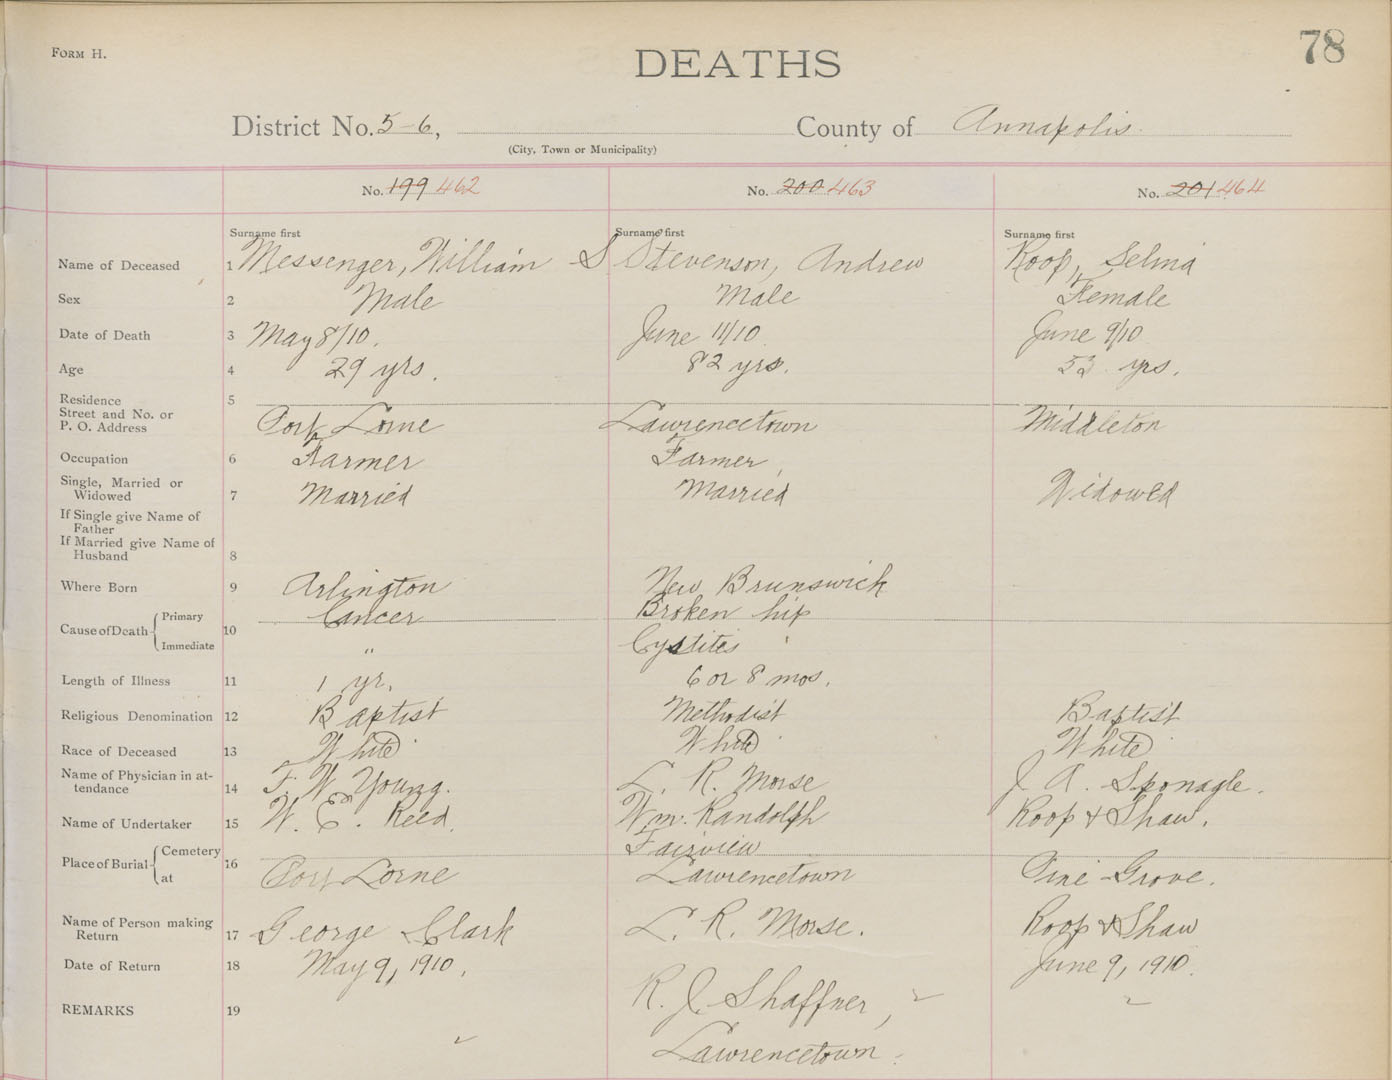 Form H.
78
DEATHS
District No. 5-6, County of Annapolis.
(City, Town or Municipality)
No. 199 462 No. 200 463 No. 201 464
Surname first Surname first Surname first
Name of Deceased 1 Messenger, William S Stevenson, Andrew Roop, Selina
Sex 2 Male Male Female
Date of Death 3 May 8/10. June 11/10 June 9/10
Age 4 29 yrs. 82 yrs. 53 yrs.
Residence 5
Street and No. or
P. O. Address Port Lorne Lawrencetown Middleton
Occupation 6 Farmer Farmer
Single, Married or
Widowed 7 Married Married Widowed
If Single give Name of
Father
If Married give Name of
Husband 8
Where Born 9 Arlington New Brunswick
Cause of Death Primary 10 Cancer Broken hip
Immediate " Cystites
Length of Illness 11 1 yr. 6 or 8 mos.
Religious Denomination 12 Baptist Methodist Baptist
Race of Deceased 13 White White White
Name of Physician in at-
tendance 14 F. W. Young. L. R. Morse J. A. Sponagle.
Name of Undertaker 15 W. E. Reed. Wm. Randolph Roop & Shaw.
Place of Burial Cemetery 16 Fairview
at Port Lorne Lawrencetown Pine-Grove.
Name of Person making
Return 17 George Clark L. R. Morse. Roop & Shaw
Date of Return 18 May 9, 1910. June 9, 1910.
REMARKS 19 R. J. Shaffner,
Lawrencetown.